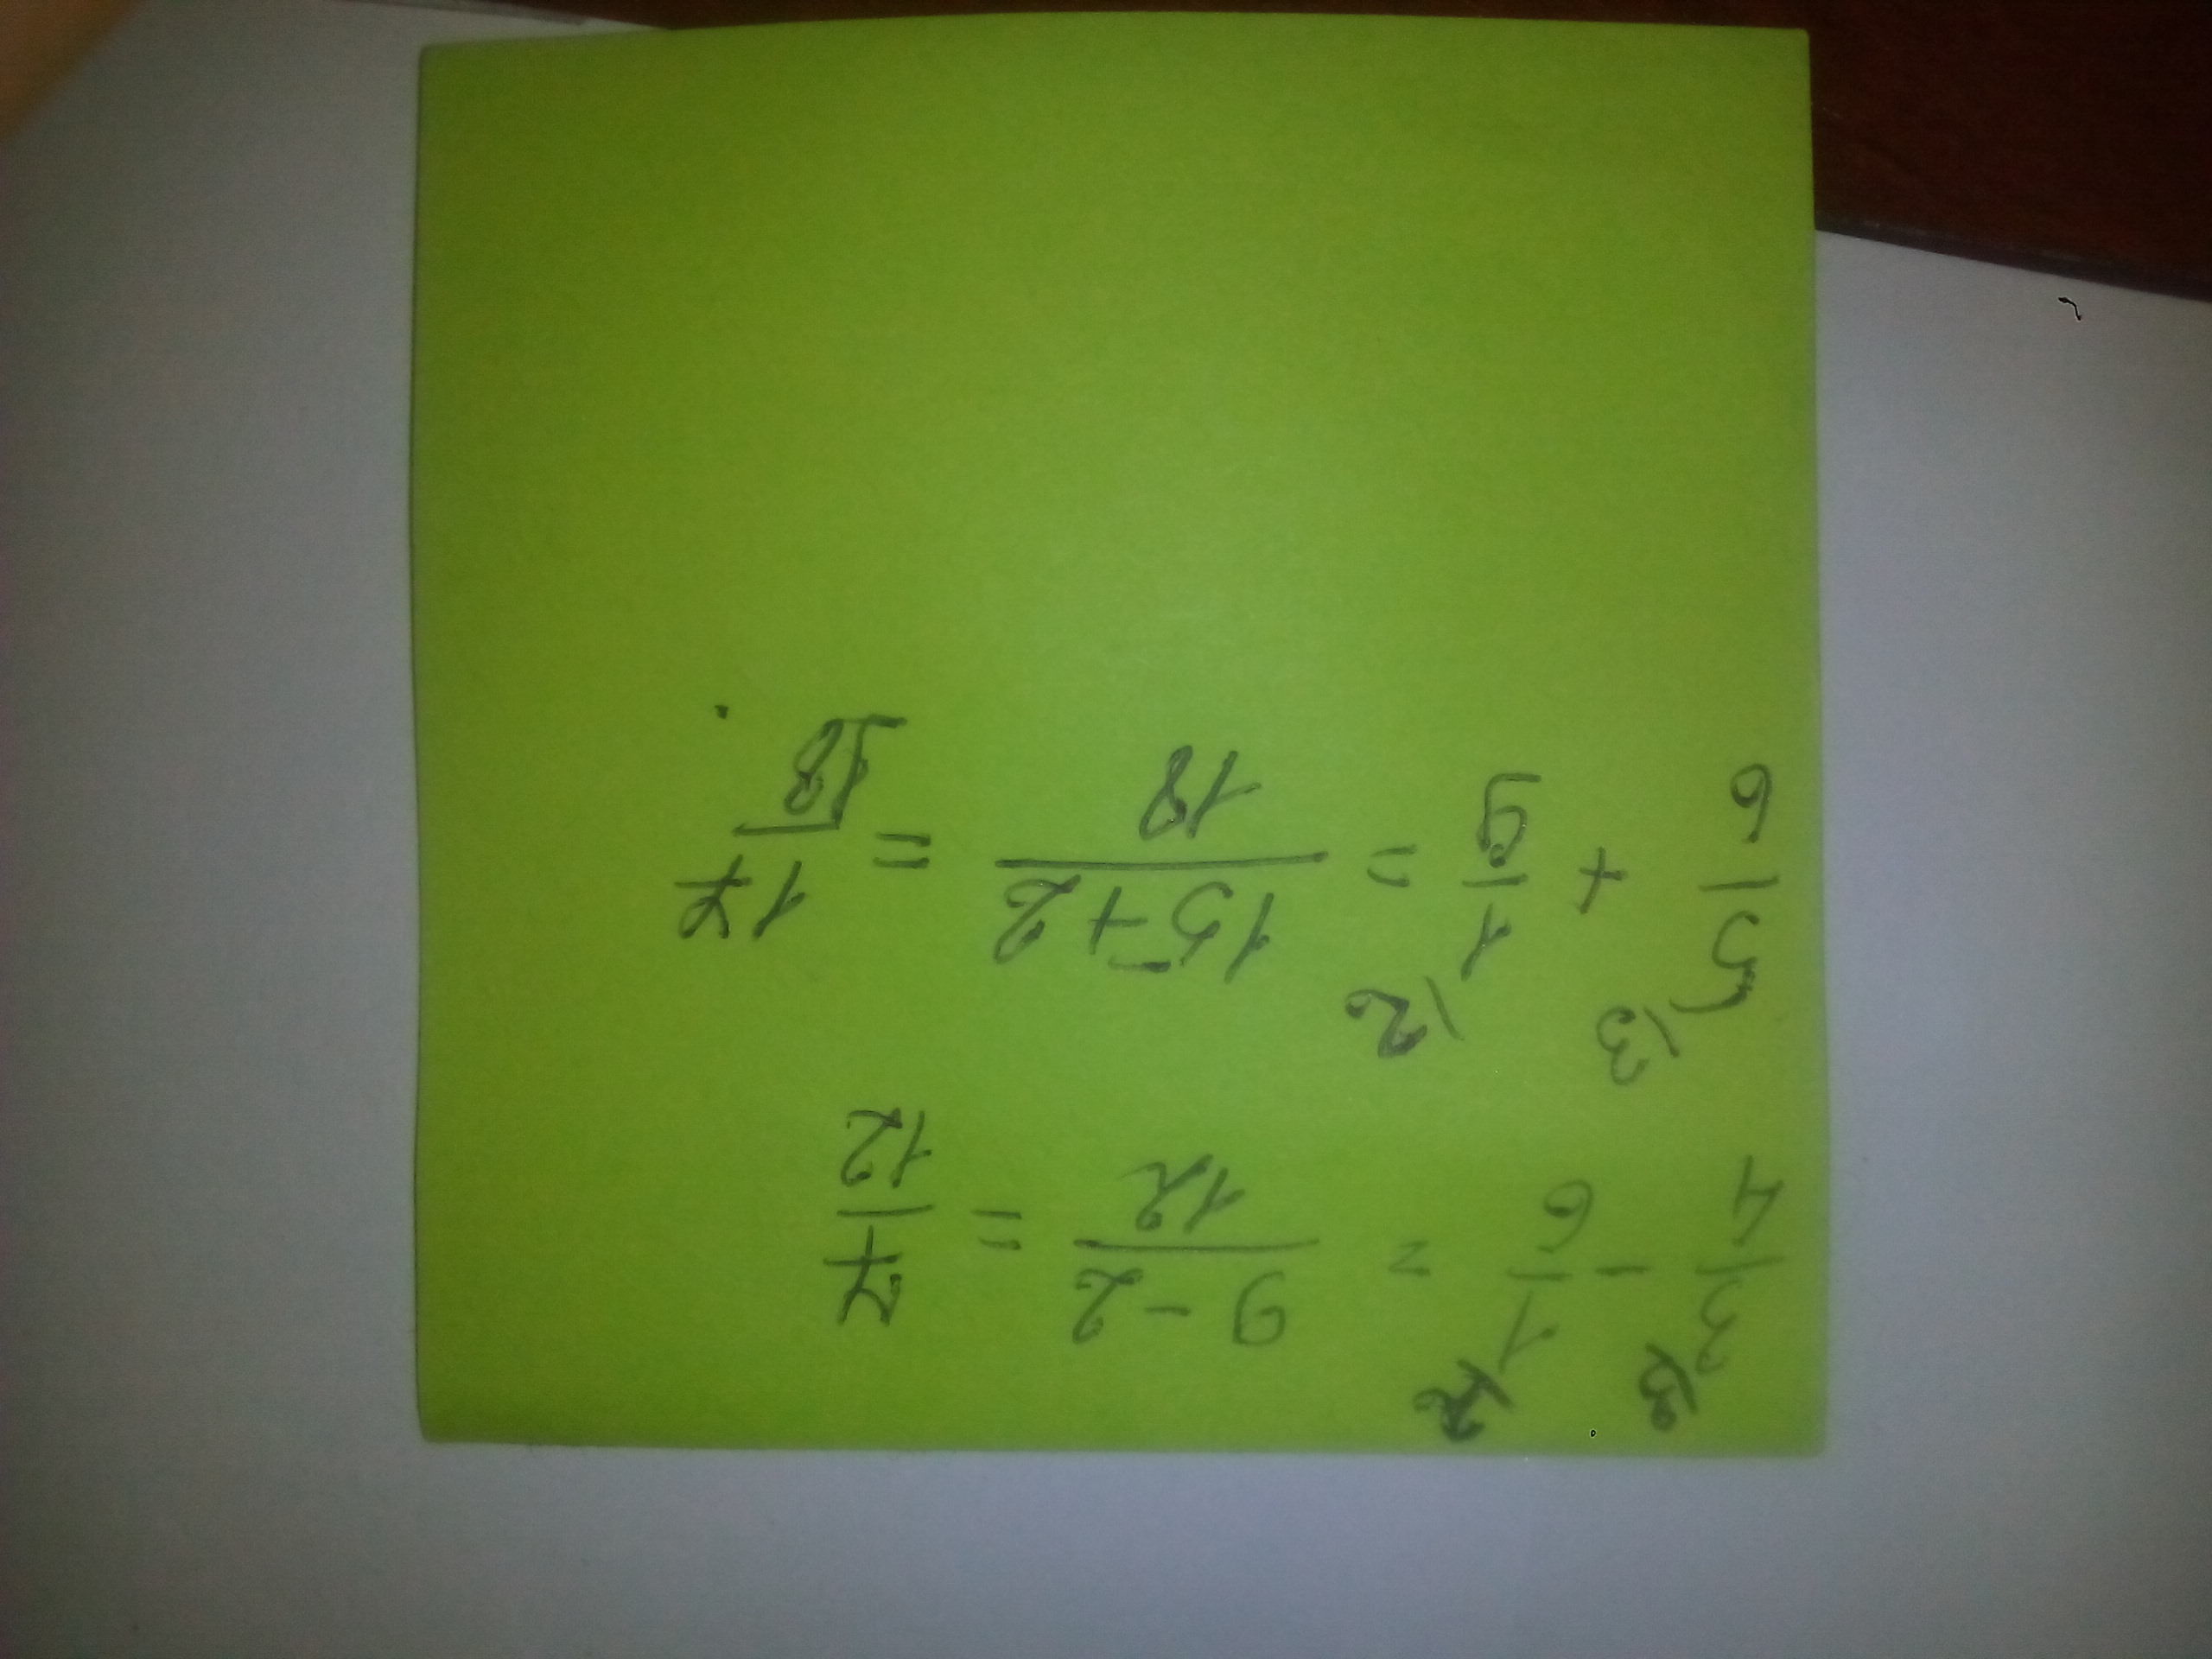 3/4 \3 - 1/6 \2 = 9-2/12 = 7/12
5/6 \3 + 1/9 \2 = 15+2/18 = 17/18